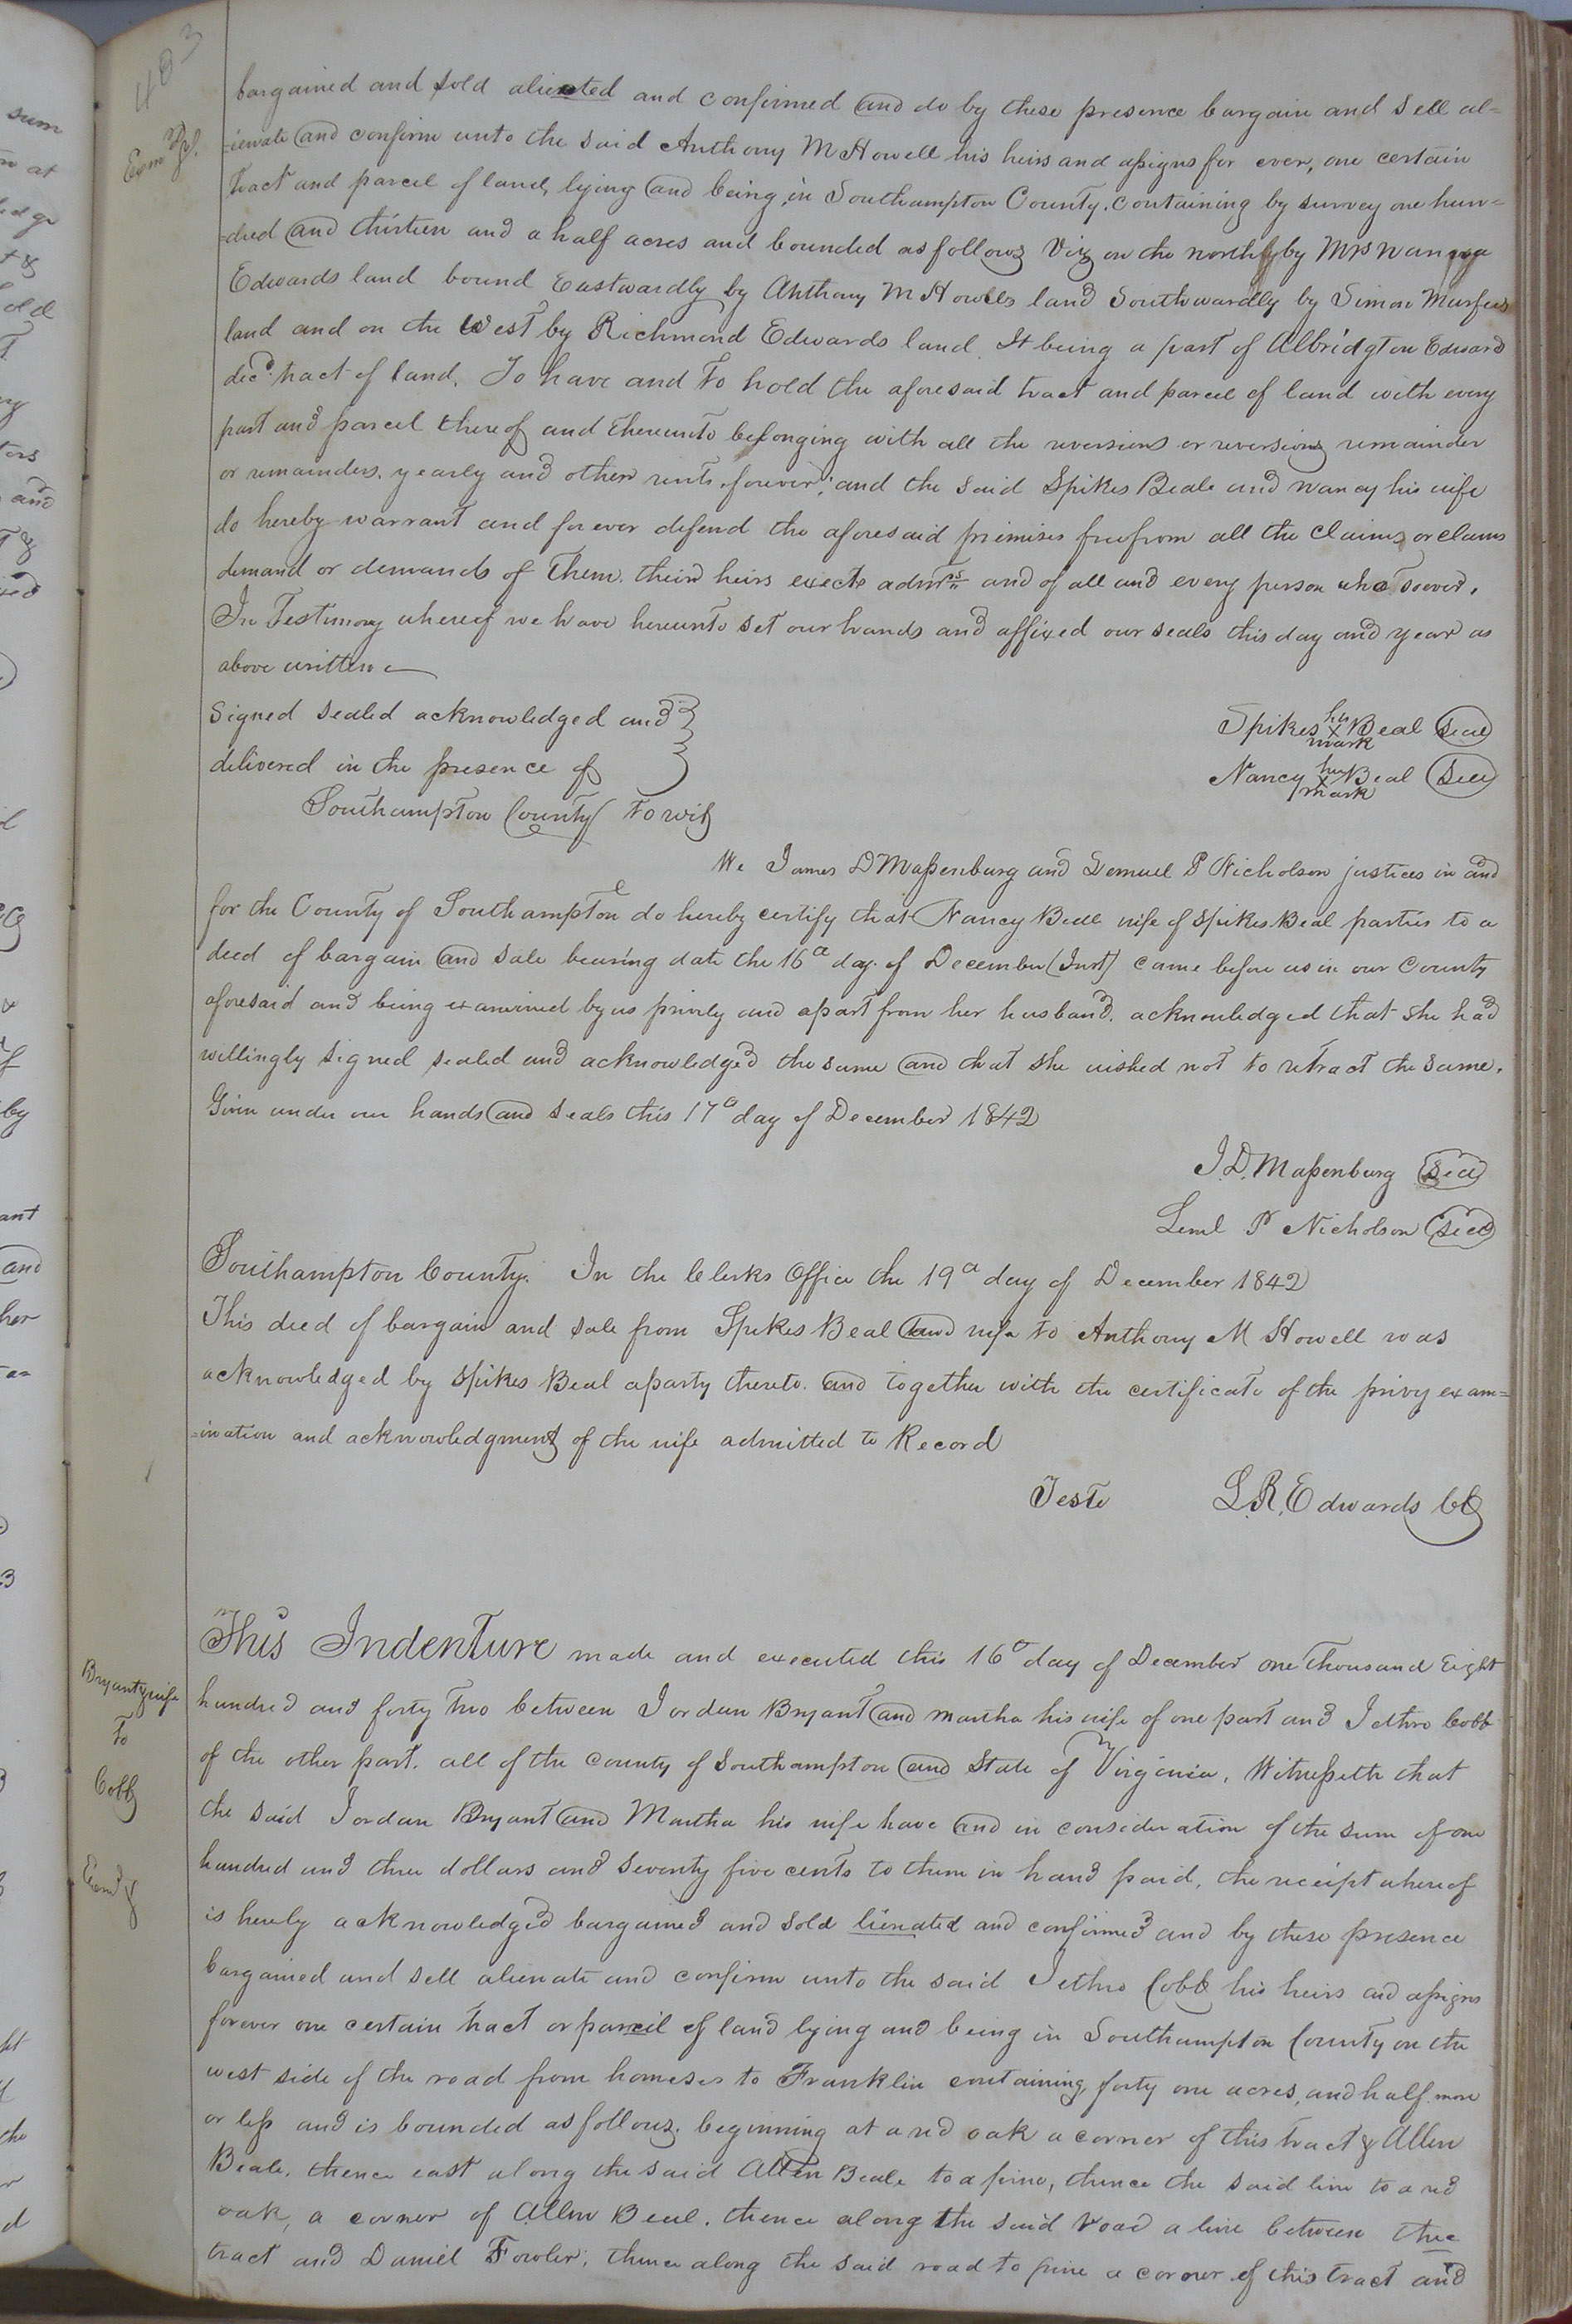 403
Exmd
bargained and sold alienated and confirmed and do by these presence bargain and sell al=
=ienate and confirm unto the said Anthony M Howell his heirs and assigns for ever, one certain
tract and parcel of land, lying and being in Southampton County. containing by survey one hun=
=dred and thirteen and a half acres and bounded as follows Viz on the north by Mrs Nancy
Edwards land bound Eastwardly by Anthony M Howells land Southwardly by Simon Murfees
land and on the West by Richmond Edwards land. It being a part of Albridgton Edward
decd. tract of land. To have and to hold the aforesaid tract and parcel of land with every
part and parcel thereof and thereunto belonging with all the reversions or reversions remainder
or remainders. yearly and other rents forever; and the said Spikes Beale and Nancy his wife
do hereby warrant and forever defend the aforesaid premises free from all the claims or claims
demand or demands of them. their heirs exects admrs and of all and every person whatsoever.
In Testimony whereof we have hereunto set our hands and affixed our seals this day and year as
above written
Signed sealed acknowledged and
delivered in the presence of
Spikes his X mark Beal Seal
Nancy her X mark Beal Seal
Southampton County towit
We James D Massenburg and Lemuel P Nicholson justices in and
for the County of Southampton do hereby certify that Nancy Beal wife of Spikes Beal parties to a
deed of bargain and sale bearing date the 16th day of December (Inst) came before us in our County
aforesaid and being examined by us privily and apart from her husband. acknowledged that she had
willingly signed sealed and acknowledged the same and that she wished not to retract the same.
Given under our hands and seals this 17th day of December 1842
J. D. Massenburg Seal
Leml P Nicholson Seal
Southampton County. In the Clerks Office the 19th day of December 1842
This deed of bargain and sale from Spikes Beal and wife to Anthony M Howell was
acknowledged by Spikes Beal a party thereto. and together with the certificate of the privy exam=
=ination and acknowledgment of the wife admitted to Record
Teste L. R. Edwards CC
Bryant & wife
To
Cobb
Exmd
This Indenture made and executed this 16th day of December one Thousand Eight
hundred and forty two between Jordan Bryant and Martha his wife of one part and Jethro Cobb
of the other part. all of the county of Southampton and State of Virginia. Witnesseth that
the said Jordan Bryant and Martha his wife have and in consideration of the sum of one
hundred and three dollars and seventy five cents to them in hand paid, the receipt whereof
is hereby acknowledged bargained and sold lienated and confirmed and by these presence
bargained and sell alienate and confirm unto the said Jethro Cobb his heirs and assigns
forever one certain tract or parceil of land lying and being in Southampton County on the
west side of the road from homeses to Franklin containing forty one acres, and half more
or less and is bounded as follows. beginning at a red oak a corner of this tract & Allen
Beale. thence east along the said Allen Beale to a pine, thence the said line to a red
oak, a corner of Allen Beal. thence along the said road a line between thee
tract and Daniel Fowler; thence along the said road to pine a corner of this tract and